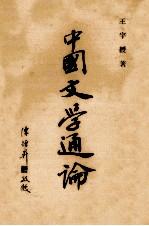 王宇綬著
中國文學通論